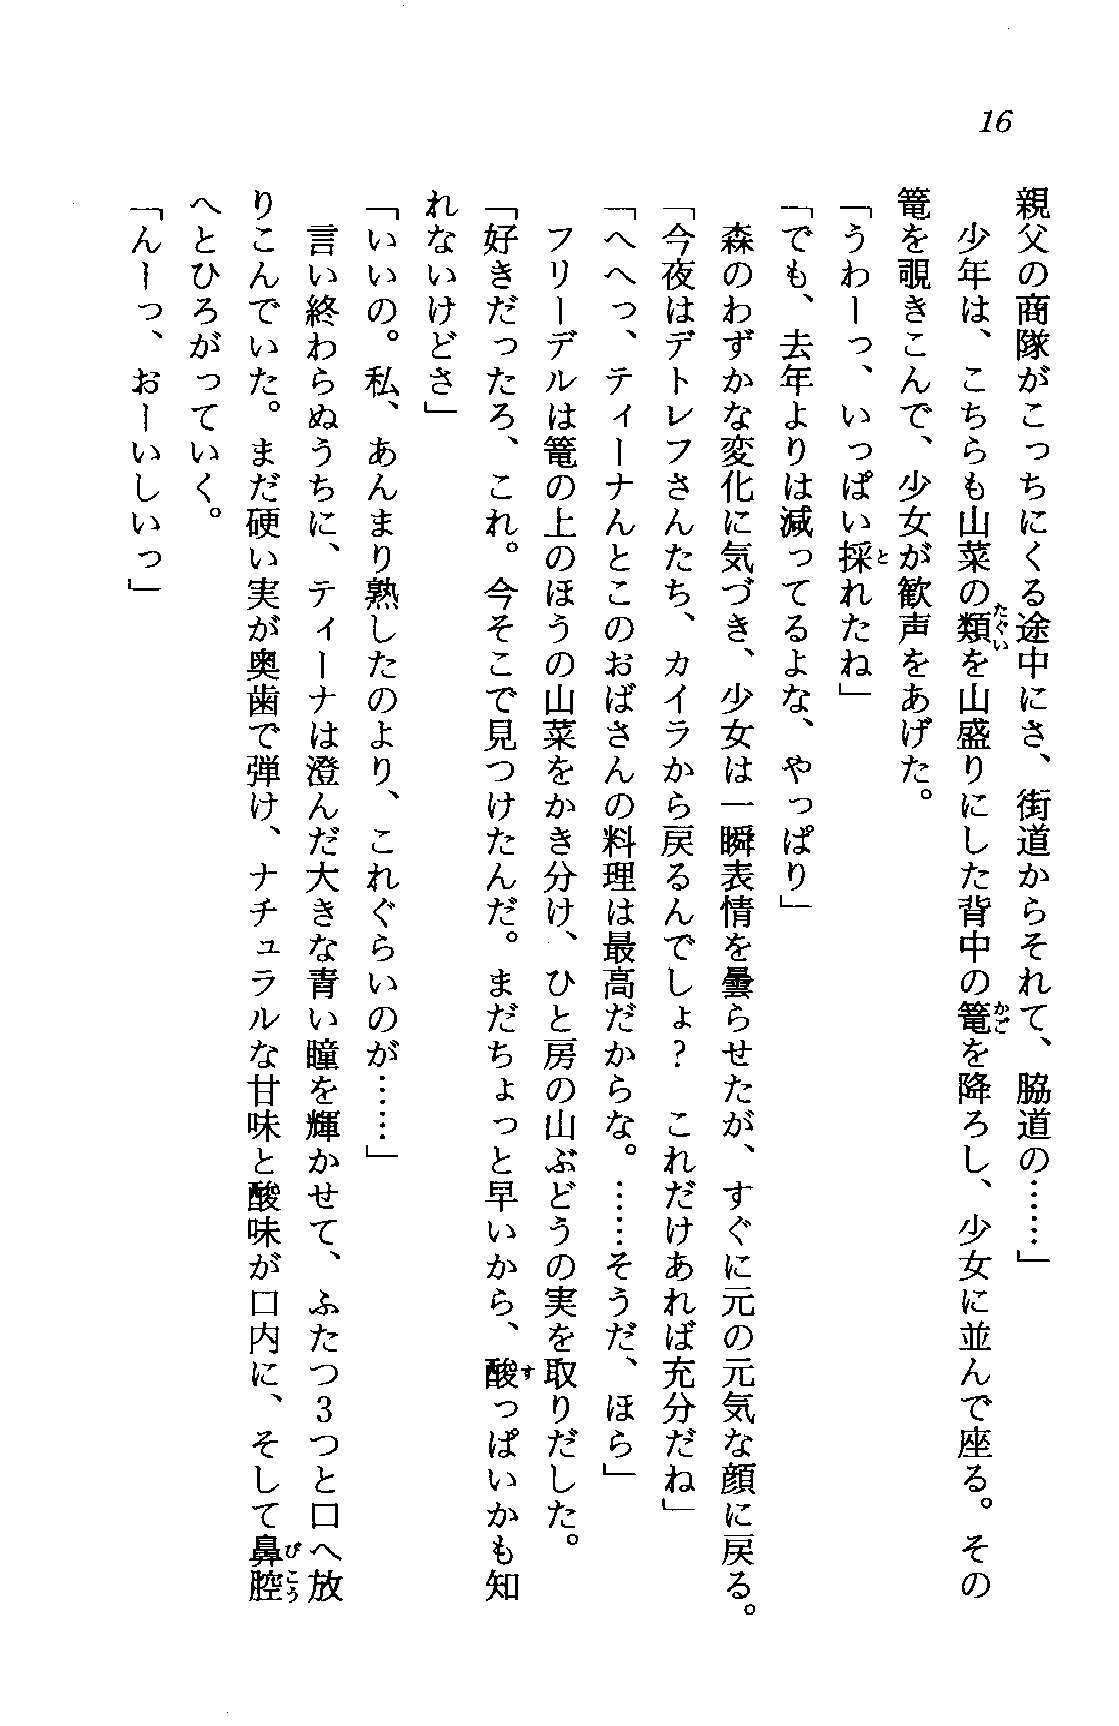 16
親父の商隊がこっちにくる途中にさ、街道からそれて、脇道の……」
　少年は、こちらも山菜の類を山盛りにした背中の篭を降ろし、少女に並んで座る。その
篭を覗きこんで、少女が歓声をあげた。
「うわーっ、いっぱい採れたね」
「でも、去年よりは減ってるよな、やっぱり」
　森のわずかな変化に気づき、少女は一瞬表情を曇らせたが、すぐに元の元気な顔に戻る。
「今夜はデトレフさんたち、カイラから戻るんでしょ？　これだけあれば充分だね」
「へへっ、ティーナんとこのおばさんの料理は最高だからな。……そうだ、ほら」
　フリーデルは篭の上のほうの山菜をかき分け、ひと房の山ぶどうの実を取りだした。
「好きだったろ、これ。今そこで見つけたんだ。まだちょっと早いから、酸っぱいかも知
れないけどさ」
「いいの。私、あんまり熟したのより、これぐらいのが……」
　言い終わらぬうちに、ティーナは澄んだ大きな青い瞳を輝かせて、ふたつ3つと口へ放
りこんでいた。まだ硬い実が奥歯で弾け、ナチュラルな甘味と酸味が口内に、そして鼻腔
へとひろがっていく。
「んーっ、おーいしいっ」